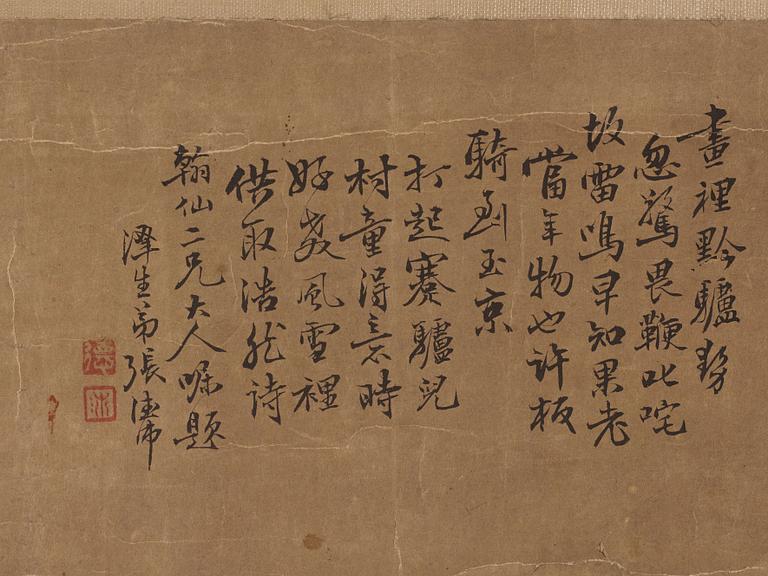 畫裡黔驢勢
忽驚畏鞭叱咤
坂雷鳴早知果老
當年物也許板
騎到玉京
打起蹇驢兒
村童得意時
好教風雪裡
供取浩然詩
翰仙二兄大人囑題
澤生弟張沛